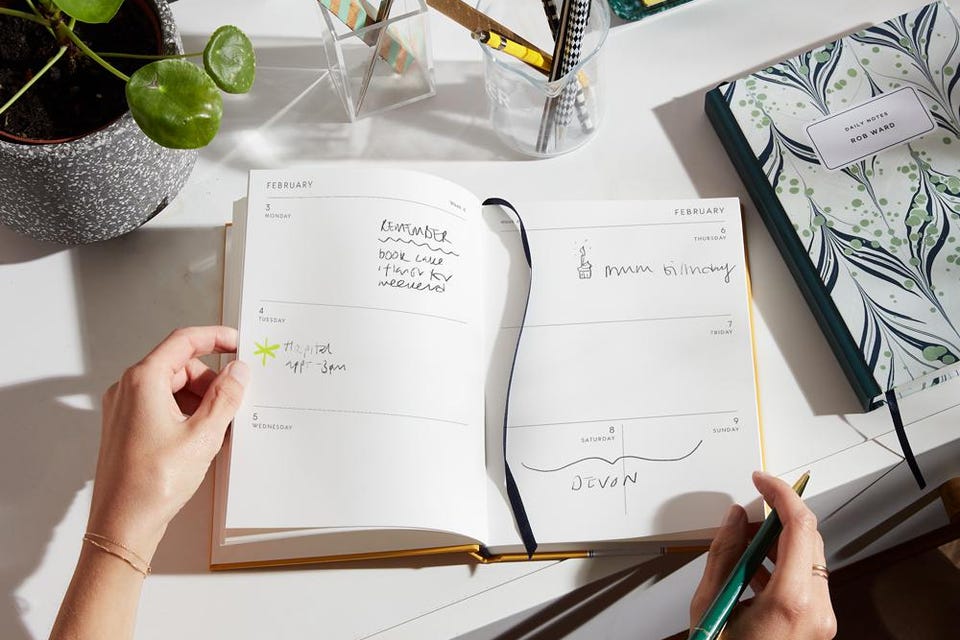 FEBRUARY
3
MONDAY
REMEMBER
book
for
weekend
4
TUESDAY
Hospital
appt - 3pm
5
WEDNESDAY
FEBRUARY
6
THURSDAY
mum birthday
7
FRIDAY
8
SATURDAY
9
SUNDAY
DEVON
DAILY NOTES
ROB WARD